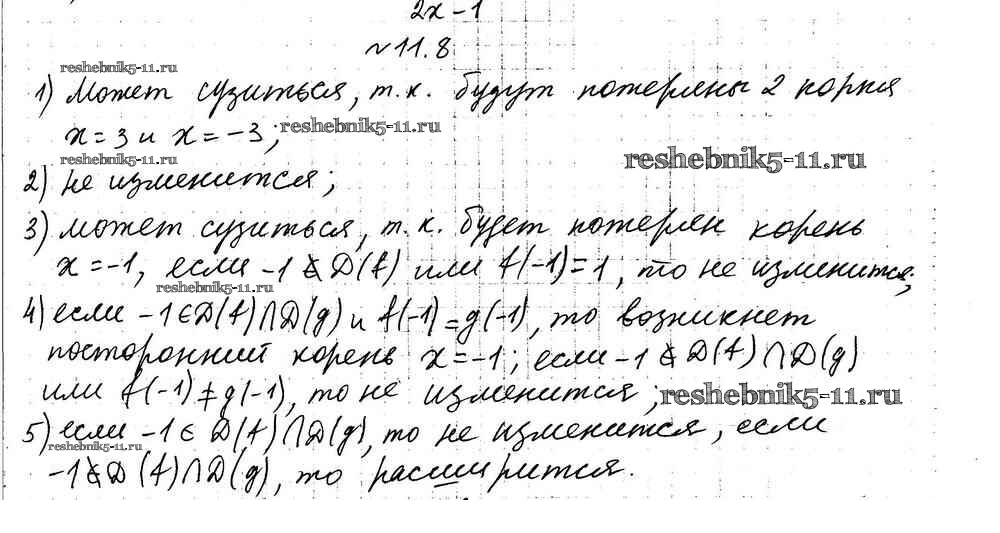 2x-1
№11.8
reshebnik5-11.ru
1) Может сузиться, т.к. будут потеряны 2 корня
x=3 и x=-3; reshebnik5-11.ru
reshebnik5-11.ru reshebnik5-11.ru
2) Не изменится;
3) может сузиться, т.к. будет потерян корень
x=-1, если -1 ∉ D(f) или f(-1)=1, то не изменится;
reshebnik5-11.ru
4) если -1 ∈ D(f)∩D(g) и f(-1)=g(-1), то возникнет
посторонний корень x=-1; если -1 ∉ D(f)∩D(g)
или f(-1)≠g(-1), то не изменится; reshebnik5-11.ru
5) если -1 ∈ D(f)∩D(g), то не изменится, если
reshebnik5-11.ru
-1 ∉ D(f)∩D(g), то расширится.